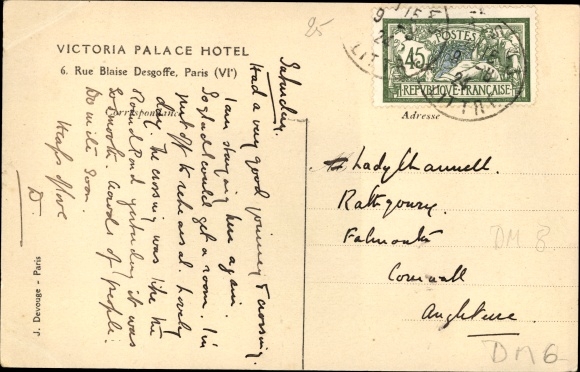 VICTORIA PALACE HOTEL
6. Rue Blaise Desgoffe, Paris (VIᵉ)
Correspondance
Saturday.
Had a very good journey & crossing.
I am staying here again.
So glad I could get a room. I'm
just off to rehearsal. Lovely
day. The crossing was like the
Round Pond yesterday it was
so smooth. Crowds of people!
Do write soon.
Heaps of love
D
J. Devouge - Paris
25
POSTES
45
REPUBLIQUE FRANÇAISE
Adresse
Lady Channell
Falmouth
Cornwall
Angleterre
DM 8
DM6